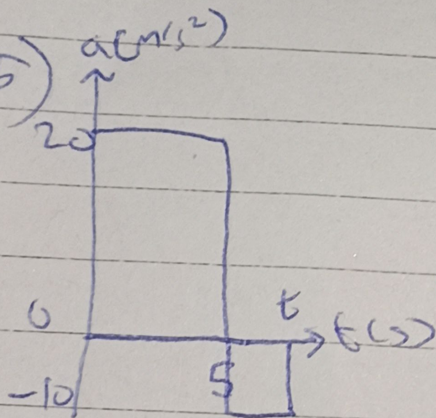 5)
a(m/s²)
20
0
t
t(s)
5
-10